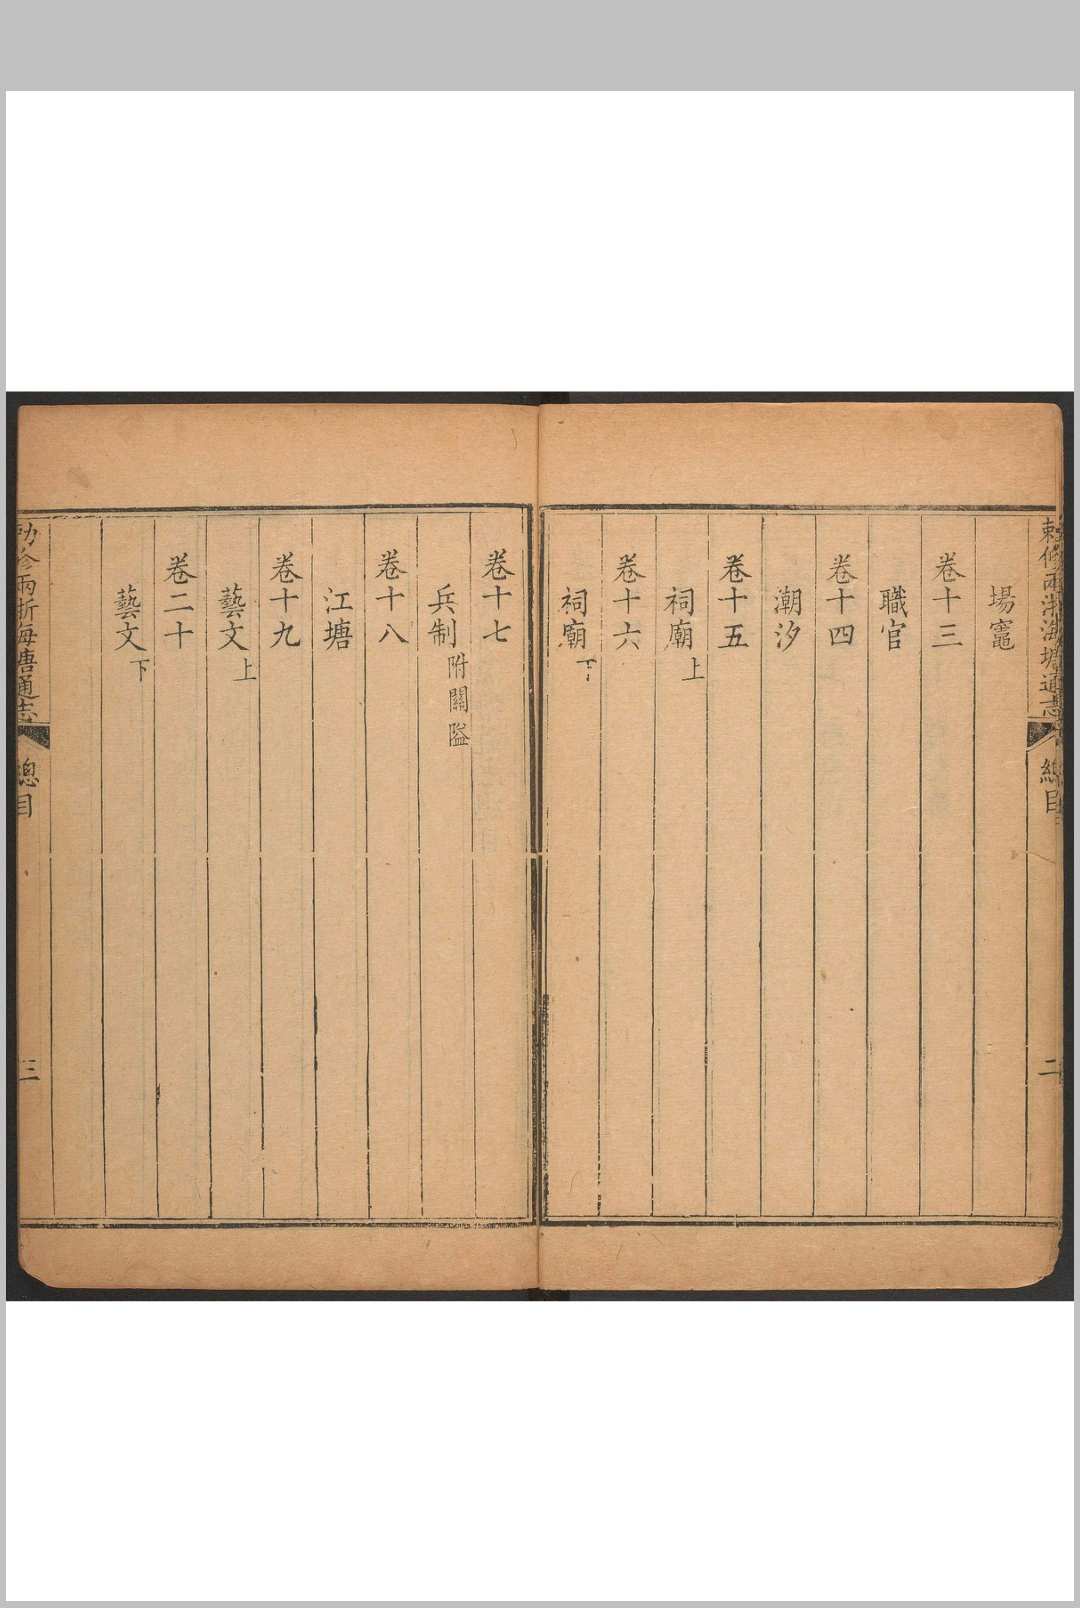 敕修兩浙海塘通志
總目
二
場竈
卷十三
職官
卷十四
潮汐
卷十五
祠廟上
卷十六
祠廟下
卷十七
兵制附關隘
卷十八
江塘
卷十九
藝文上
卷二十
藝文下
敕修兩浙海塘通志
總目
三